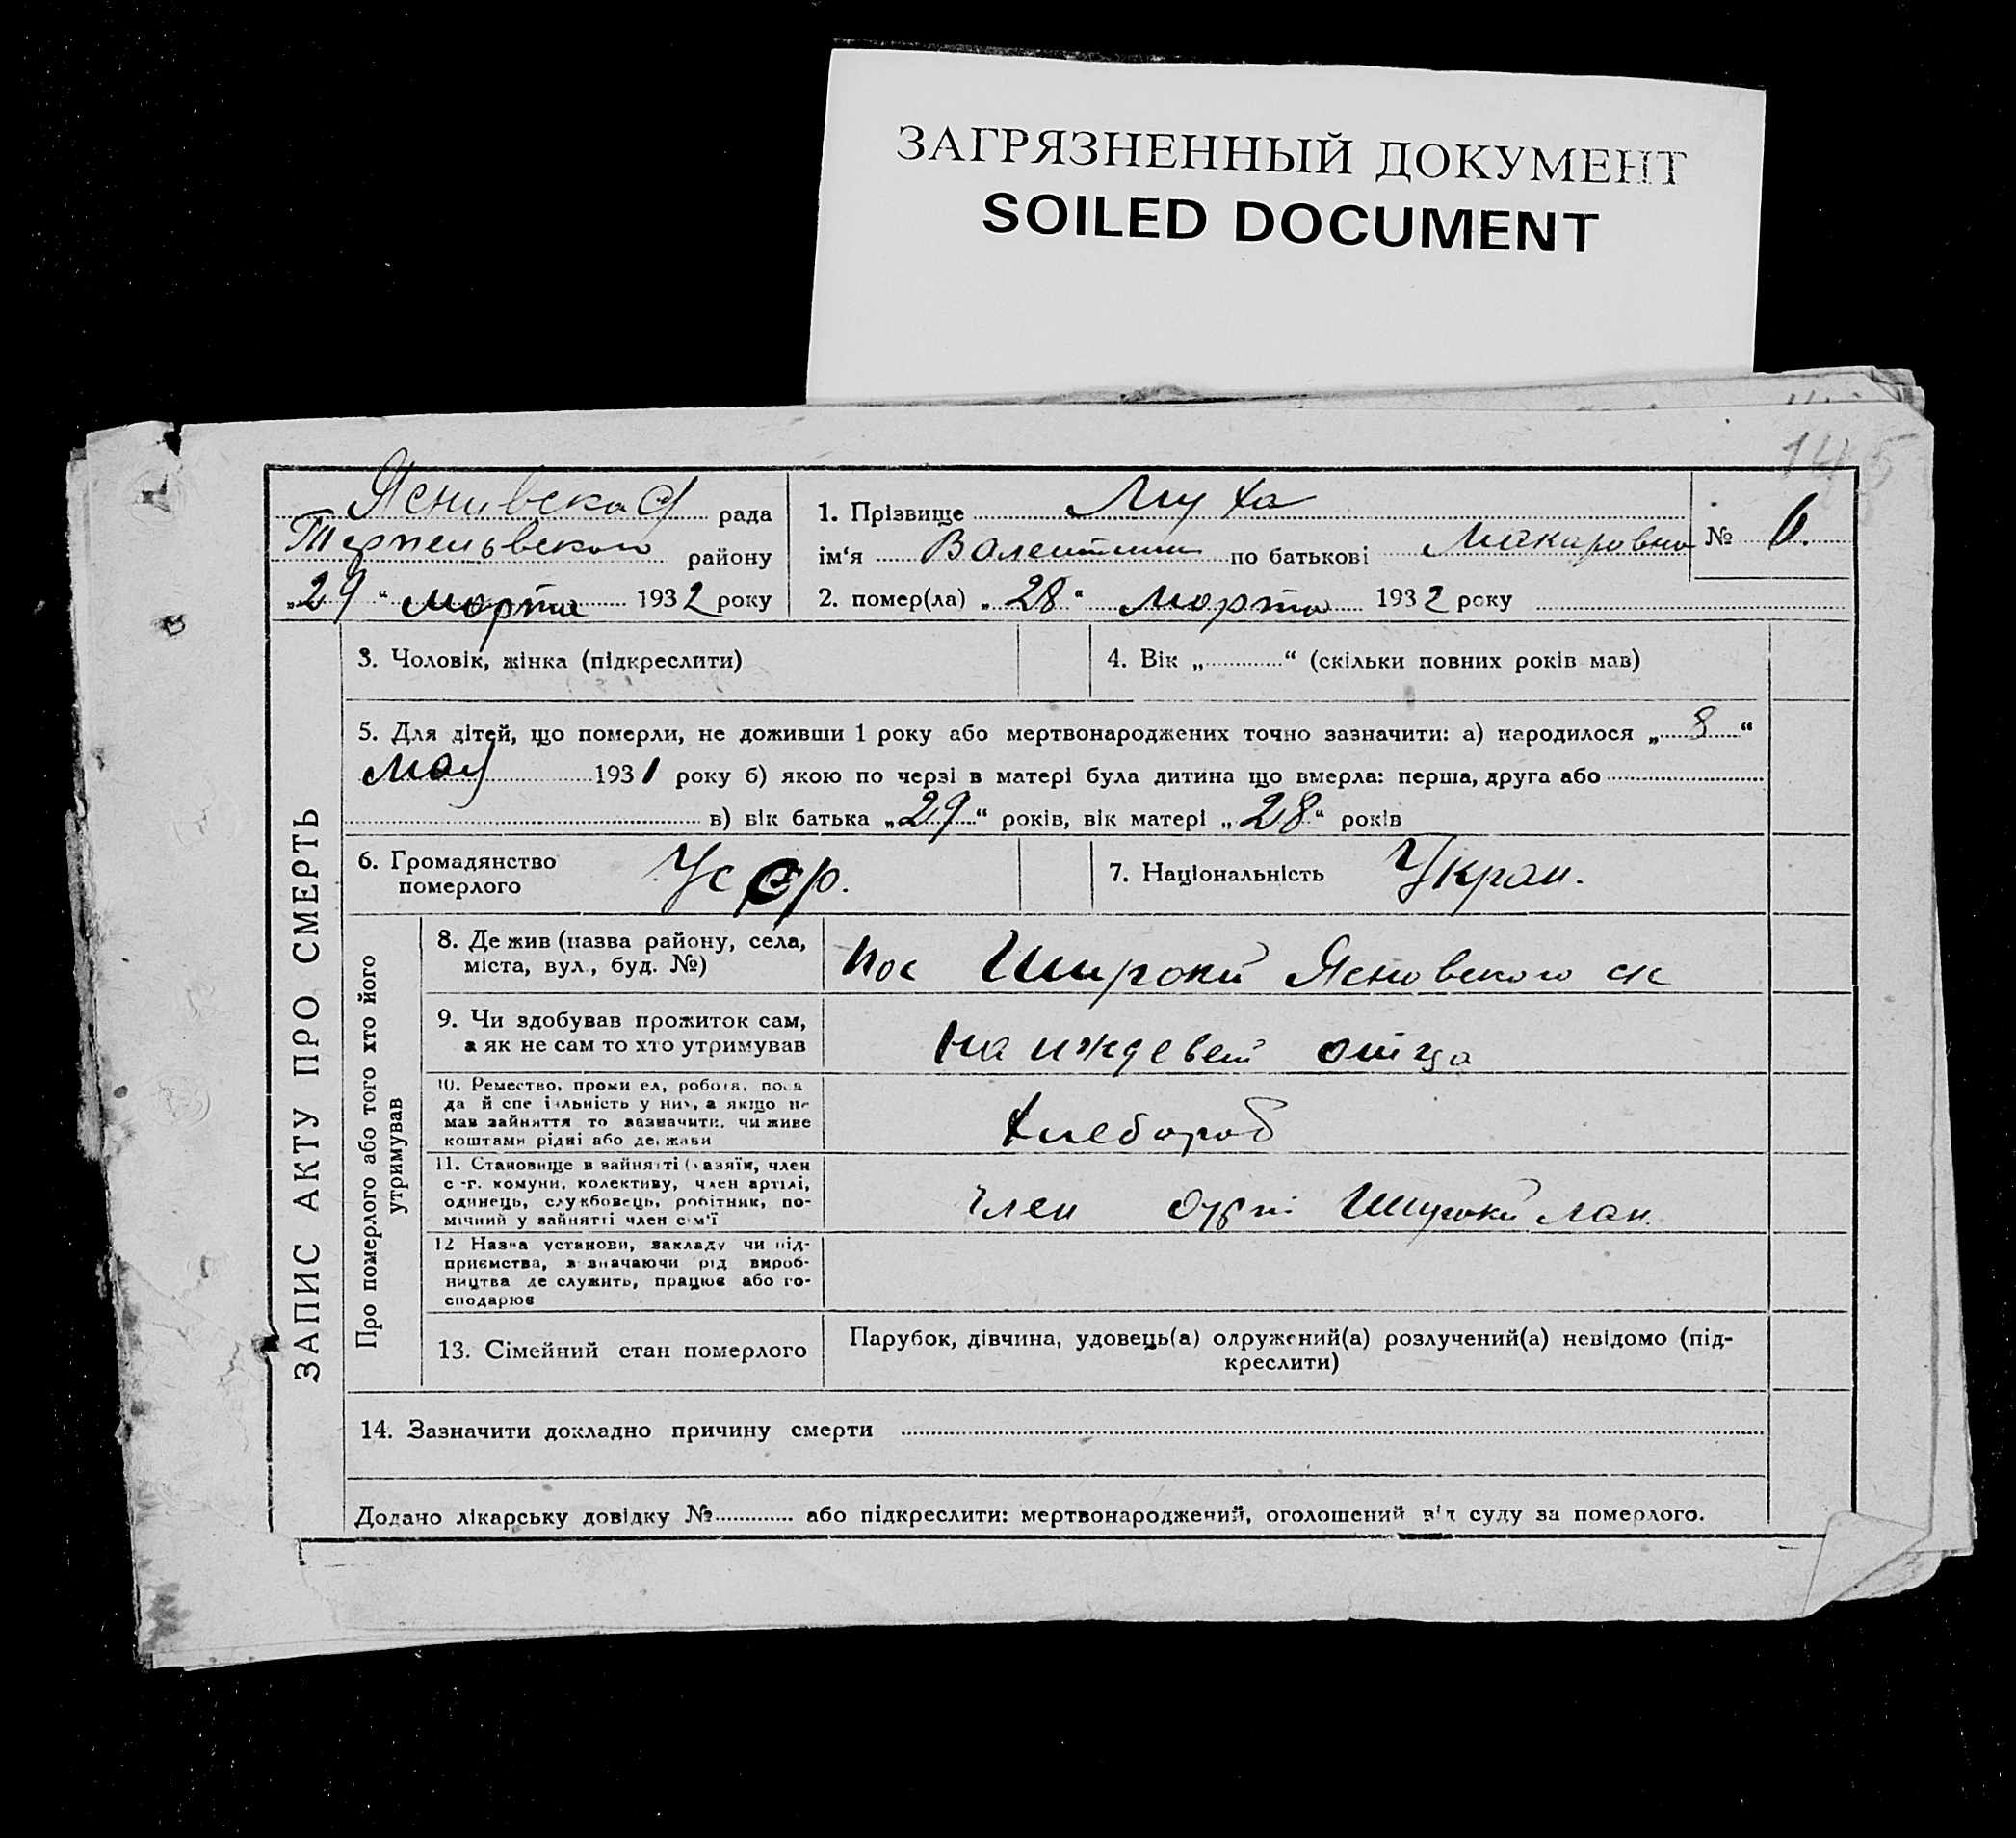 ЗАГРЯЗНЕННЫЙ ДОКУМЕНТ
SOILED DOCUMENT
145
Яснивская рада
района
"29" марта 1932 року
1. Прізвище Муха
ім'я Валентина по батькові Макаровна
№ 6.
2. помер(ла) "28" марта 1932 року
ЗАПИС АКТУ ПРО СМЕРТЬ
3. Чоловік, жінка (підкреслити)
4. Вік „ “ (скільки повних років мав)
5. Для дітей, що померли, не доживши 1 року або мертвонароджених точно зазначити: а) народилося „8“
мая 1931 року б) якою по черзі в матері була дитина що вмерла: перша, друга або
в) вік батька „29“ років, вік матері „28“ років
6. Громадянство
померлого
Усср.
7. Національність Украи.
Про померлого або того хто його
утримував
8. Де жив (назва району, села,
міста, вул., буд. №)
пос Широкий Ясновского ск
9. Чи здобував прожиток сам,
а як не сам то хто утримував
на иждевен отца
10. Ремество, промисел, робота, поса
да й спеціальність у них, а якщо не
мав зайняття то зазначити, чи живе
коштами рідні або держави
Хлебороб
11. Становище в зайнятті (хазяїн, член
с.-г. комуни, колективу, член артілі,
одинець, службовець, робітник, по-
мічний у зайнятті член сім'ї
Член Широкий лан.
12 Назва установи, закладу чи під-
приємства, зазначаючи рід вироб-
ництва де служить, працює або го-
сподарює
13. Сімейний стан померлого
Парубок, дівчина, удовець(а) одружений(а) розлучений(а) невідомо (під-
креслити)
14. Зазначити докладно причину смерти
Додано лікарську довідку № або підкреслити: мертвонароджений, оголошений від суду за померлого.